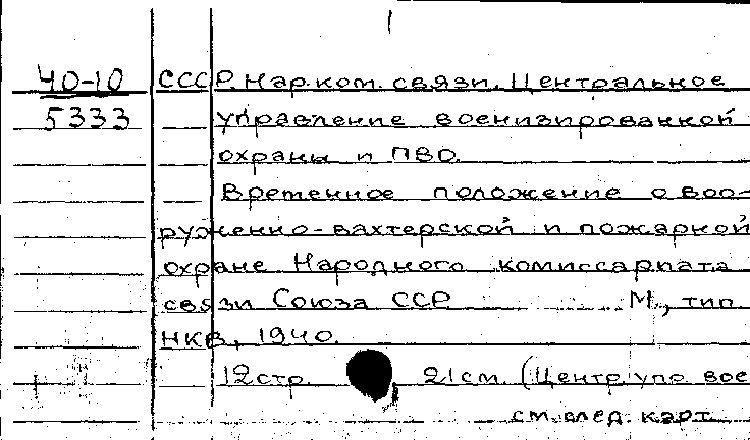 40-10 СССР. Нар.ком. связи. Центральное
5333 управление военизированной
охраны и ПВО.
Временное положение о воо-
руженно-вахтерской и пожарной
охране Народного комиссариата
связи Союза ССР М., тип
НКВ, 1940.
12 стр. 21 см. (Центр. упр. вое
см. след. карт.